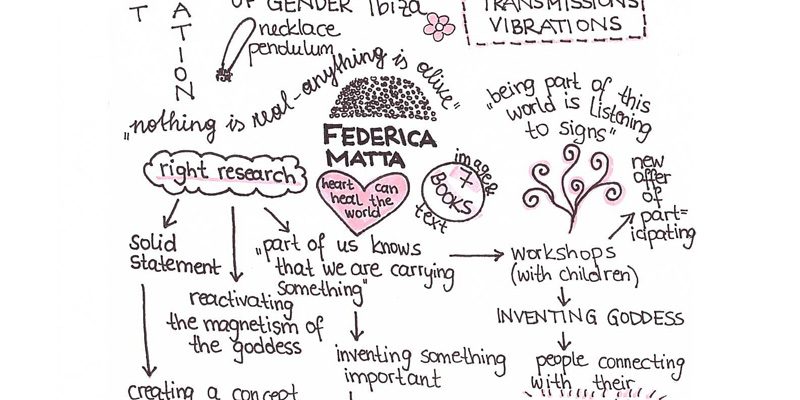 T
ATION
OF GENDER Ibiza
necklace
pendulum
TRANSMISSIONS
VIBRATIONS
"nothing is real-anything is alive"
FEDERICA
MATTA
heart can
heal the
world
image &
7
BOOKS
text
"being part of this
world is listening
to signs"
new
offer
of
part=
icipating
right research
solid
statement
reactivating
the magnetism of
the goddess
"part of us knows
that we are carrying
something"
workshops
(with children)
INVENTING GODDESS
inventing something
important
people connecting
with their
creating a concept